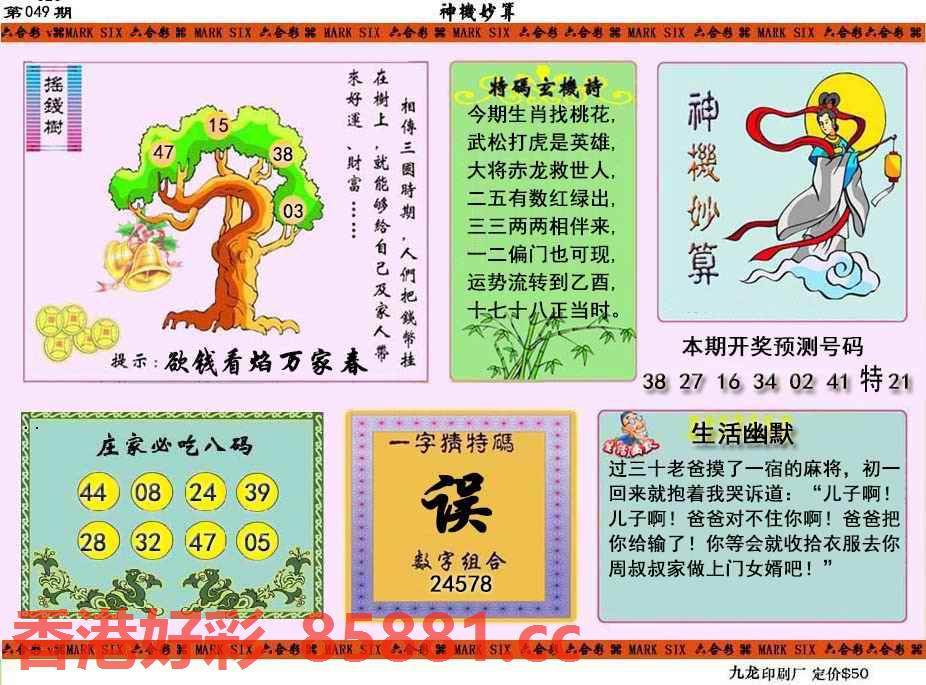 第049期
神機妙算
六合彩 MARK SIX 六合彩 MARK SIX 六合彩 MARK SIX 六合彩 MARK SIX 六合彩 MARK SIX 六合彩 MARK SIX 六合彩 MARK SIX 六合彩
搖錢樹
相傳三國時期，人們把錢幣挂
在樹上，就能够给自己及家人帶
來好運、財富……
15
47
38
03
提示:欲钱看焰万家春
特碼玄機詩
今期生肖找桃花,
武松打虎是英雄,
大将赤龙救世人,
二五有数红绿出,
三三两两相伴来,
一二偏门也可现,
运势流转到乙酉,
十七十八正当时。
神機妙算
本期开奖预测号码
38 27 16 34 02 41 特21
庄家必吃八码
44 08 24 39
28 32 47 05
一字猜特碼
误
数字组合
24578
生活幽默
生活幽默
过三十老爸摸了一宿的麻将，初一
回来就抱着我哭诉道：“儿子啊！
儿子啊！爸爸对不住你啊！爸爸把
你给输了！你等会就收拾衣服去你
周叔叔家做上门女婿吧！”
香港好彩 85881.cc
六合彩 MARK SIX 六合彩 MARK SIX 六合彩 MARK SIX 六合彩 MARK SIX 六合彩 MARK SIX 六合彩 MARK SIX 六合彩 MARK SIX 六合彩
九龙印刷厂 定价$50